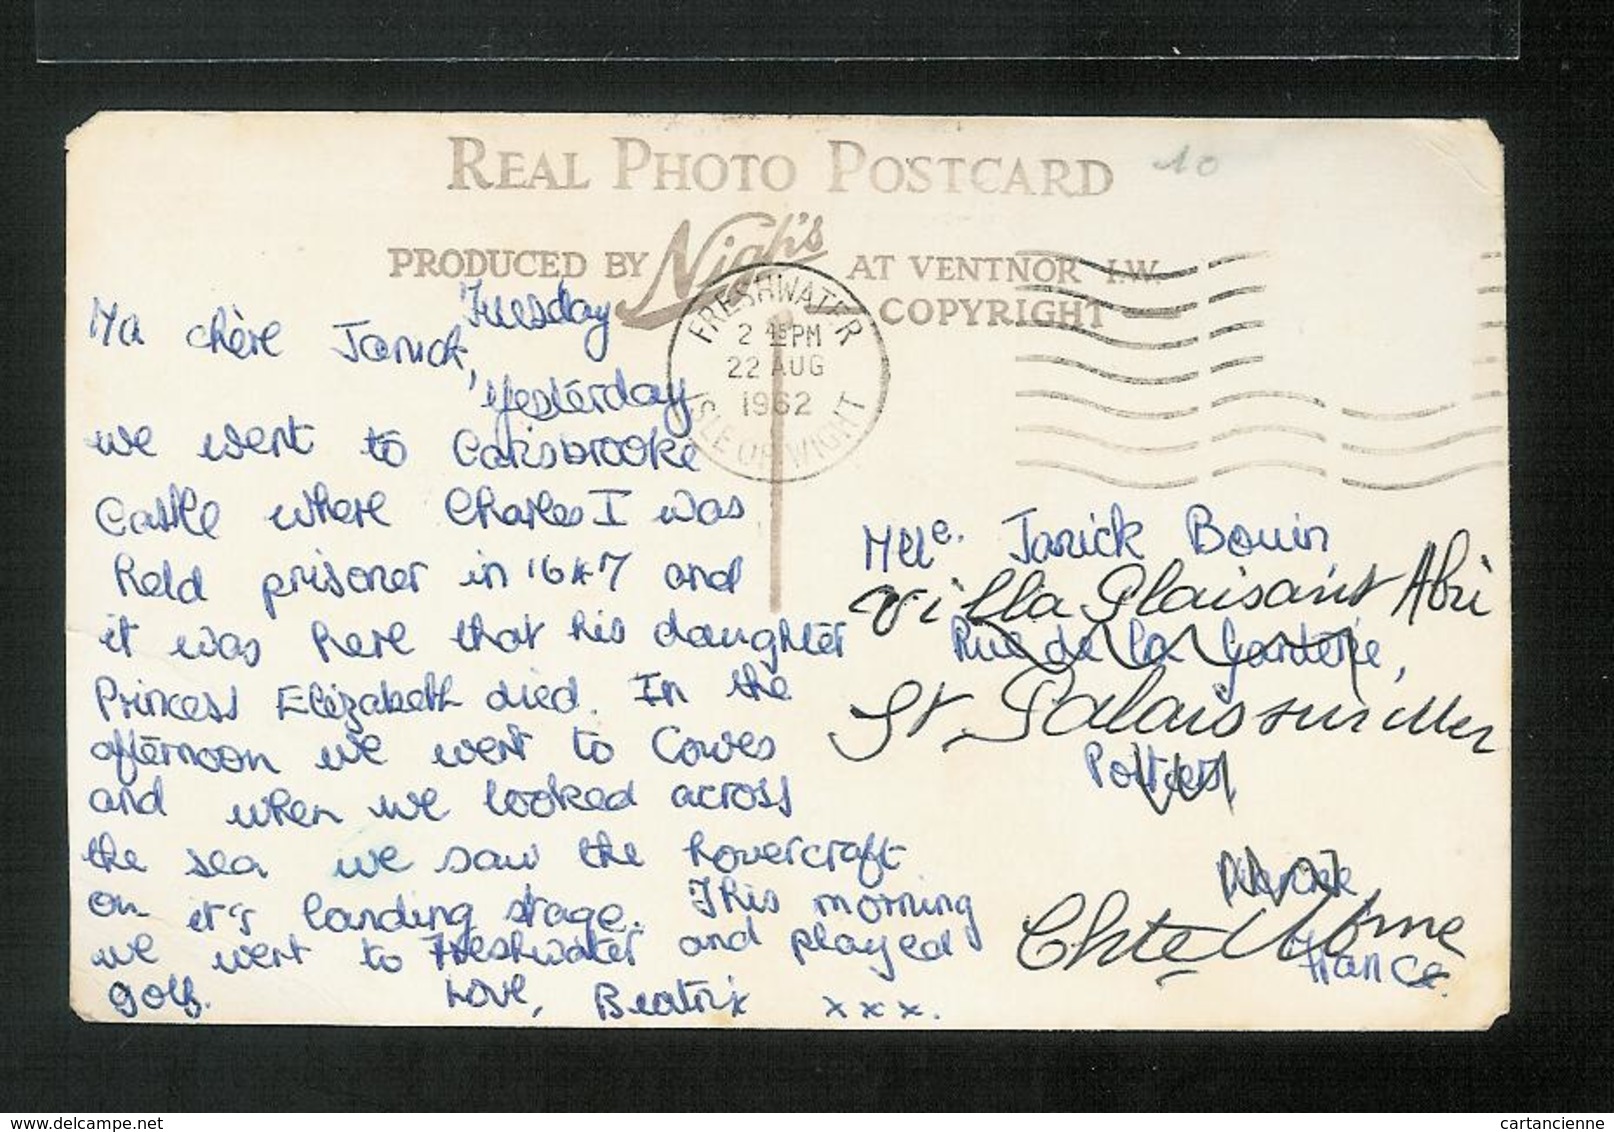 REAL PHOTO POSTCARD
10
PRODUCED BY Nigh's AT VENTNOR I.W.
COPYRIGHT
FRESHWATER
2 45 PM
22 AUG
1962
ISLE OF WIGHT
Tuesday
Ma chère Janick,
Yesterday
we went to Carisbrooke
Castle where Charles I was
held prisoner in 1647 and
it was here that his daughter
Princess Elizabeth died. In the
afternoon we went to Cowes
and when we looked across
the sea we saw the hovercraft
on it's landing stage. This morning
we went to Freshwater and played
golf. Love, Beatrix xxx.
Mlle. Janick Bouin
Villa Plaisant Abri
Rue de la
St. Palais sur Mer
Poitiers,
Chte
France.
cartancienne
www.delcampe.net